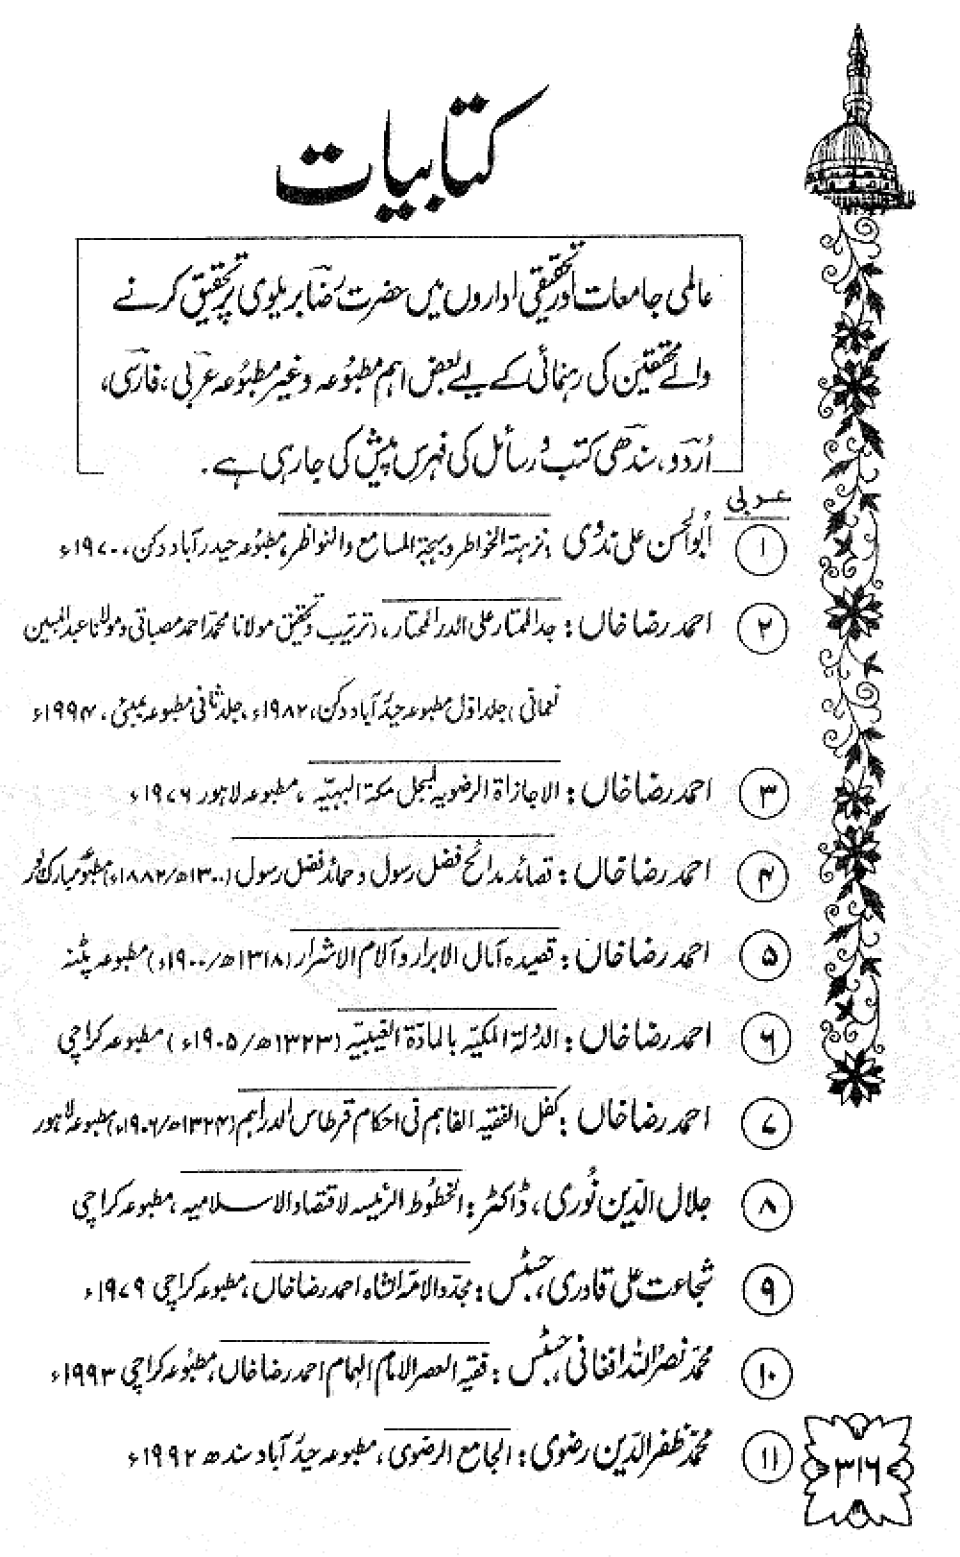 کتابیات
عالمی جامعات اور تحقیقی اداروں میں حضرت رضا بریلوی پر تحقیق کرنے
والے محققین کی رہنمائی کے لیے بعض اہم مطبوعہ و غیر مطبوعہ عربی، فارسی،
اُردو، سندھی کتب و رسائل کی فہرس پیش کی جا رہی ہے۔
عربی
۱ ابوالحسن علی ندوی: نزہتہ الخواطر و بہجۃ المسامع والنواظر، مطبوعہ حیدرآباد دکن، ۱۹۷۰ء
۲ احمد رضا خاں: جد الممتار علی الدر المختار، (ترتیب و تحقیق مولانا محمد احمد مصباحی و مولانا عبدالمبین
نعمانی) جلد اوّل مطبوعہ حیدرآباد دکن، ۱۹۸۲ء، جلد ثانی مطبوعہ بمبئی، ۱۹۹۴ء
۳ احمد رضا خاں: الاجازاۃ الرضویہ لمبجل مکۃ البہیّہ، مطبوعہ لاہور ۱۹۷۶ء
۴ احمد رضا خاں: قصائد مدائح فضل رسول و حمائد فضل رسول (۱۳۰۰ھ/۱۸۸۲ء) مطبوعہ مبارک پور
۵ احمد رضا خاں: قصیدہ آمال الابرار و آلام الاشرار (۱۳۱۸ھ/۱۹۰۰ء) مطبوعہ پٹنہ
۶ احمد رضا خاں: الدولۃ المکیہ بالمادۃ الغیبیہ (۱۳۲۳ھ/۱۹۰۵ء) مطبوعہ کراچی
۷ احمد رضا خاں: کفل الفقیہ الفاہم فی احکام قرطاس الدراہم (۱۳۲۴ھ/۱۹۰۶ء) مطبوعہ لاہور
۸ جلال الدّین نُوری، ڈاکٹر: الخطوط الرئیسہ لاقتصاد الاسلامیہ، مطبوعہ کراچی
۹ شجاعت علی قادری، جسٹس: مجدد الامۃ الشاہ احمد رضا خاں، مطبوعہ کراچی ۱۹۷۹ء
۱۰ محمد نصر اللہ افغانی، جسٹس: فقیہ العصر الامام الہمام احمد رضا خاں، مطبوعہ کراچی ۱۹۹۳ء
۱۱ محمد ظفر الدّین رضوی: الجامع الرضوی، مطبوعہ حیدرآباد سندھ ۱۹۹۲ء
۳۱۶